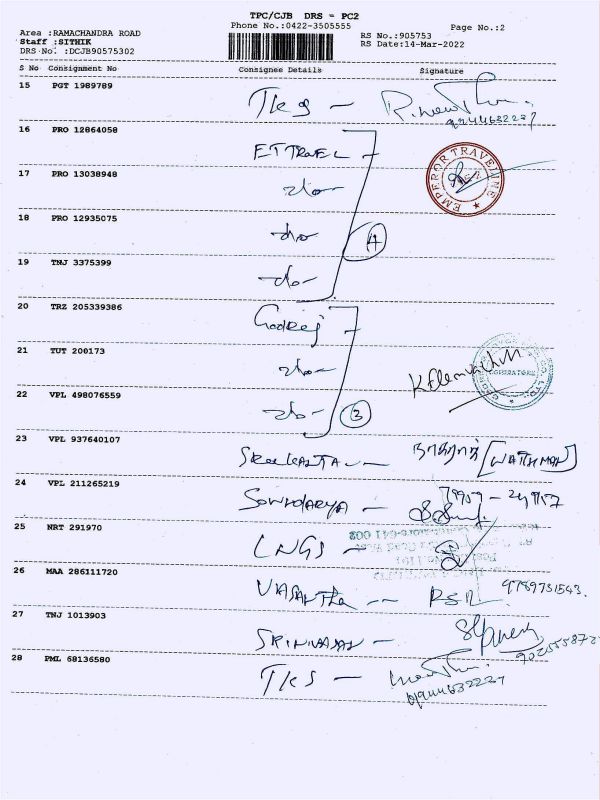 TPC/CJB DRS = PC2
Phone No.:0422-3505555
Page No.:2
Area :RAMACHANDRA ROAD
Staff :SITHIK
DRS No. :DCJB90575302
RS No.:905753
RS Date:14-Mar-2022
S No Consignment No Consignee Details Signature
15 PGT 1989789 TKS -
16 PRO 12864058 ET TRAVEL
EMPEROR TRAVELINE
17 PRO 13038948 -do-
18 PRO 12935075 -do- 4
19 TNJ 3375399 -do-
20 TRZ 205339386 Godrej
21 TUT 200173 -do-
22 VPL 498076559 -do- 3
23 VPL 937640107 SREEKANTA - [WATHMAN]
24 VPL 211265219 SOWNDARYA -
25 NRT 291970 LNGS -
26 MAA 286111720 VASANTHA - 9789731543
27 TNJ 1013903 SRINIVASAN -
28 PML 68136580 TKS -